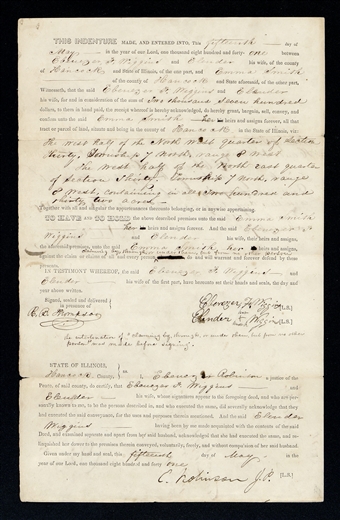 THIS INDENTURE MADE, AND ENTERED INTO, This fifteenth day of
May in the year of our Lord, one thousand eight hundred and forty one between
Ebenezer F Wiggins and Elender his wife, of the county
of Hancock and State of Illinois, of the one part, and Emma Smith
of the county of Hancock and State aforesaid, of the other part,
Witnesseth, that the said Ebenezer F Wiggins and Elender
his wife, for and in consideration of the sum of Two thousand Seven hundred
dollars, to them in hand paid, the receipt whereof is hereby acknowledged, do hereby grant, bargain, sell, convey, and confirm
unto the said Emma Smith her heirs and assigns forever, all that
tract or parcel of land, situate and being in the County of Hancock in the State of Illinois, viz:
The west half of the North west quarter of Section
Thirty, Township 7 North, range 8 West
The West half of the North east quarter
of Section Thirty Township 7 North, range
8 West, containing in all Two hundred and
thirty two acres
Together with all and singular the appurtenances thereunto belonging, or in anywise appertaining.
TO HAVE AND TO HOLD the above described premises unto the said Emma Smith
her heirs and assigns forever. And the said Ebenezer F
Wiggins and Elender his wife, their heirs and assigns,
the aforesaid premises, unto the said Emma Smith her heirs and assigns,
against the claim or claims of all and every person whomsoever, do and will warrant and forever defend by these
presents.
IN TESTIMONY WHEREOF, the said Ebenezer F Wiggins and
Elender his wife, of the first part, have hereunto set their hands and seals, the day and
year above written.
Signed, sealed and delivered
in presence of
Ebenezer F Wiggins [L.S.]
Elender Wiggins [L.S.]
Thompson
STATE OF ILLINOIS,
Hancock County, ss. I, Ebenezer Robinson a justice of the
Peace, of said county, do certify, that Ebenezer F Wiggins and
Elender his wife, whose signatures appear to the foregoing deed, and who are personally
known to me, to be the persons described in, and who executed the same, did severally acknowledge that they
had executed the said conveyance, for the uses and purposes therein mentioned. And the said Elender
Wiggins having been by me made acquainted with the contents of the said
Deed, and examined separate and apart from her said husband, acknowledged that she had executed the same, and relinquished
her dower to the premises therein conveyed, voluntarily, freely, and without compulsion of her said husband.
Given under my hand and seal, this fifteenth day of May in the
year of our Lord, one thousand eight hundred and forty one
E. Robinson J.P. [L.S.]